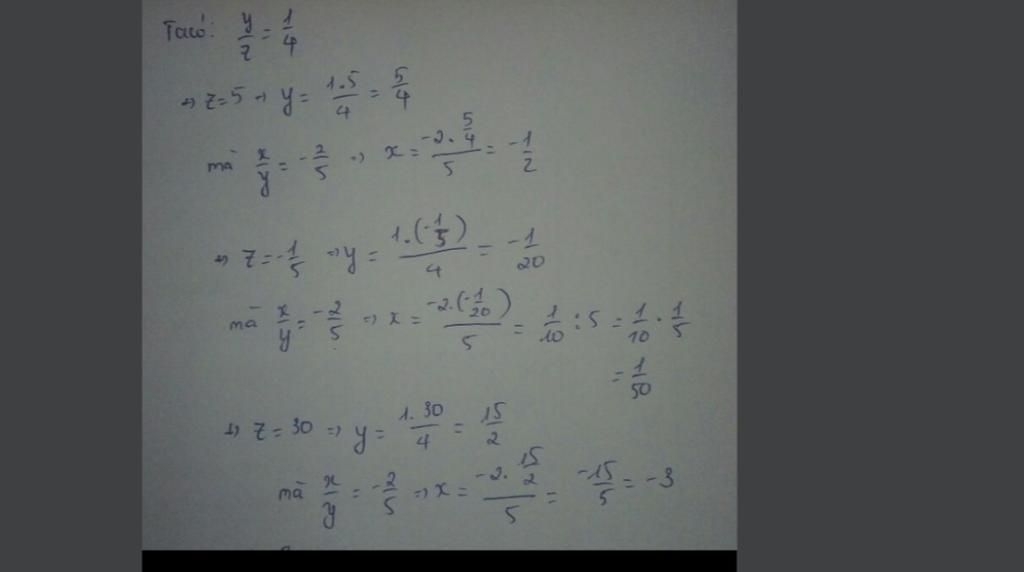 Ta có: y/z = 1/4
=> z = 5 => y = 1.5/4 = 5/4
mà x/y = -2/5 => x = (-2 . 5/4)/5 = -1/2
=> z = -1/5 => y = 1.(-1/5)/4 = -1/20
mà x/y = -2/5 => x = -2.(-1/20)/5 = 1/10 : 5 = 1/10 . 1/5
= 1/50
=> z = 30 => y = 1.30/4 = 15/2
mà x/y = -2/5 => x = (-2 . 15/2)/5 = -15/5 = -3